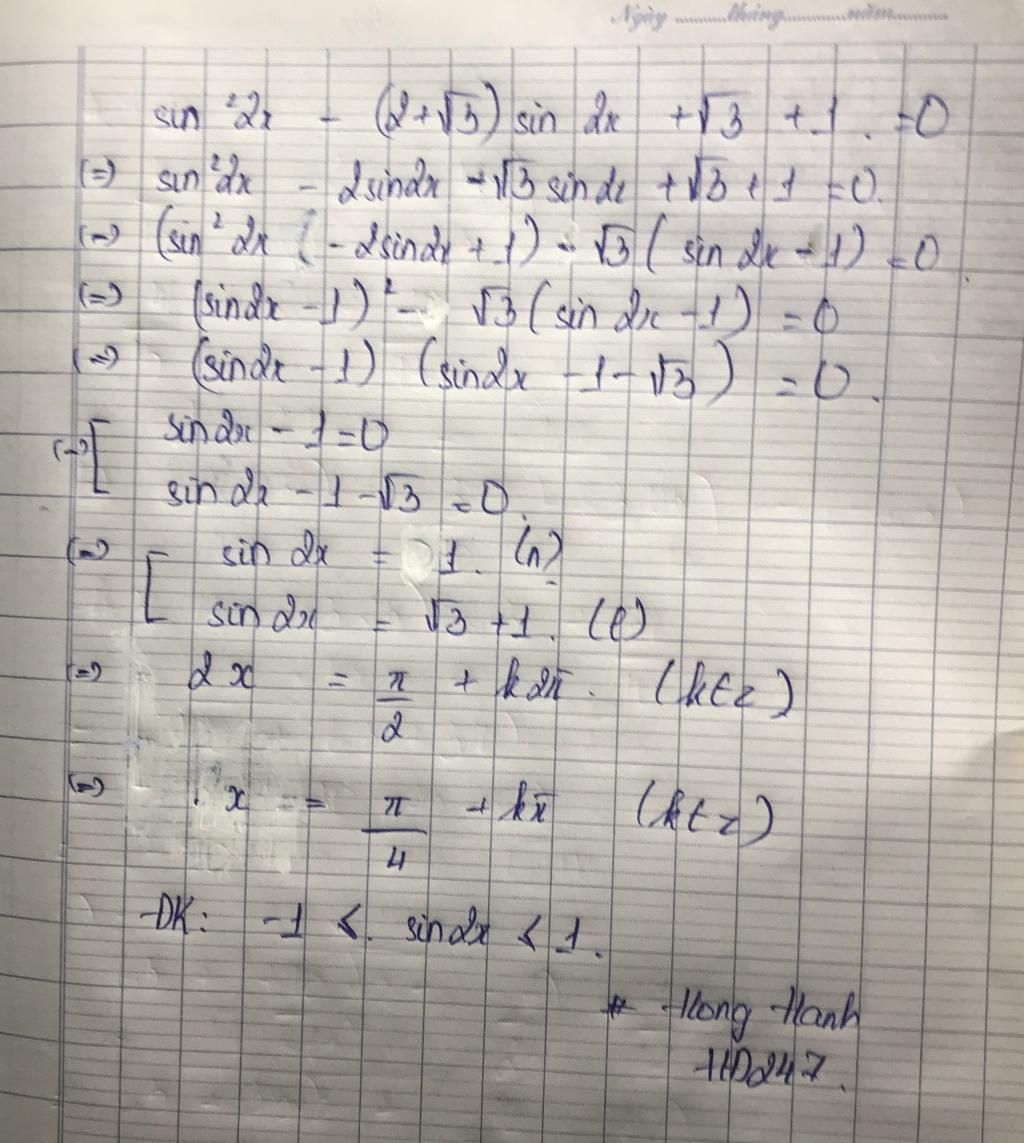 Ngày ............tháng.............năm............
sin²2x - (2+√3) sin 2x + √3 + 1. = 0
(=) sin²2x - 2sin2x - √3 sin2x + √3 + 1 = 0.
(=) (sin² 2x - 2sin2x + 1) - √3 ( sin 2x - 1) = 0.
(=) (sin2x - 1)² - √3 ( sin 2x - 1) = 0
(=) (sin2x - 1) (sin2x - 1 - √3) = 0.
(=) [ sin 2x - 1 = 0
sin 2x - 1 - √3 = 0.
(=) [ sin 2x = 1. (n)
sin 2x = √3 + 1. (l)
(=) 2x = π/2 + k2π. (k∈z)
(=) x = π/4 + kπ (k∈z)
-ĐK: -1 ≤ sin2x ≤ 1.
* Hong Hanh
HD247.